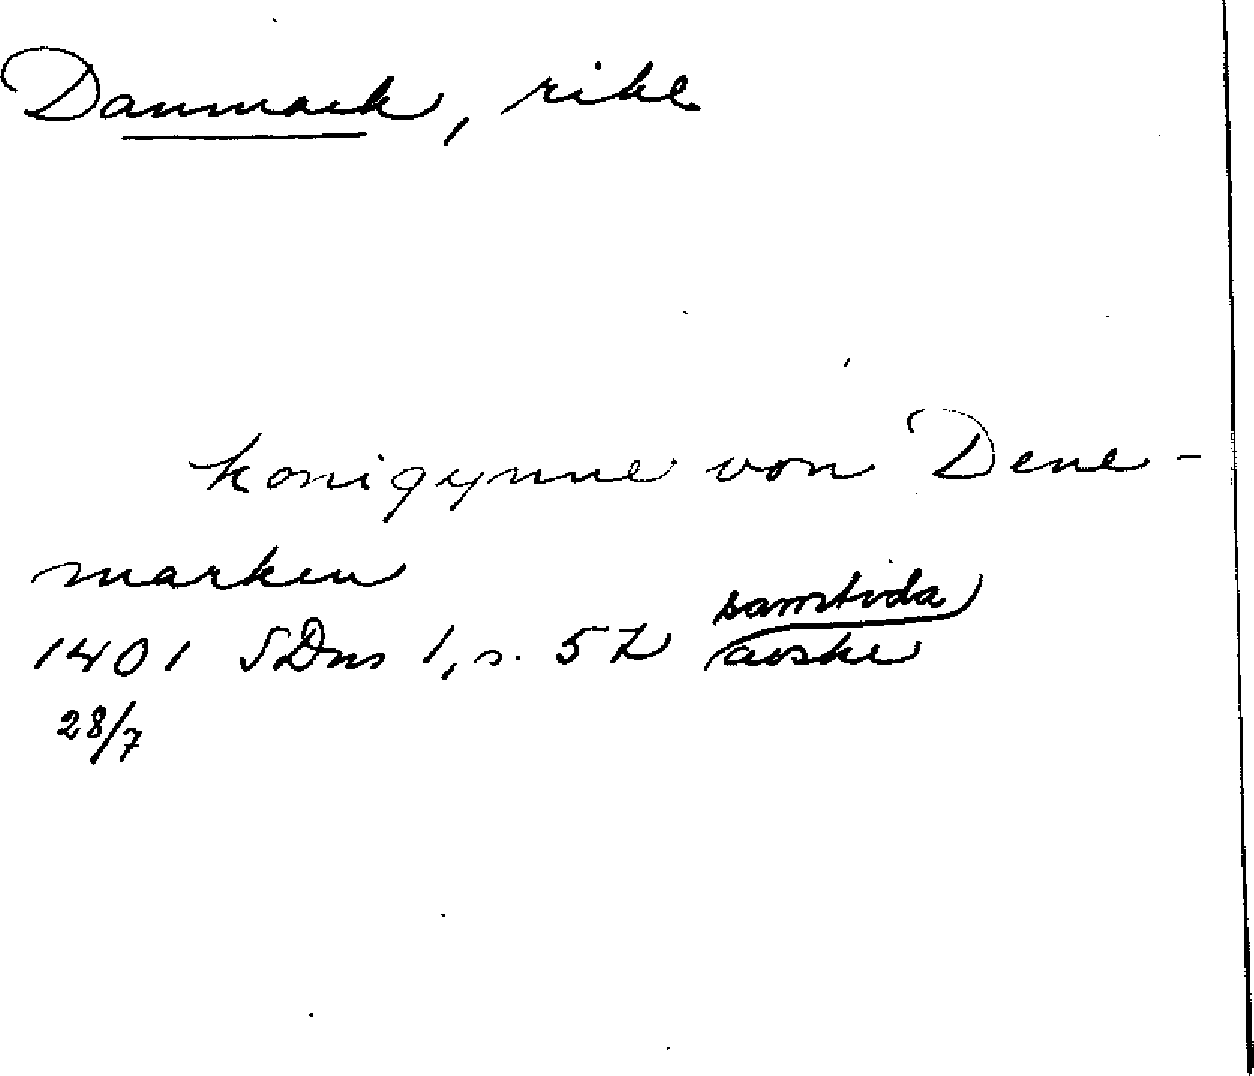 Danmark, rike
konigynne von Dene-
marken
1401 SDns 1, s. 52 (samtida
avskr)
28/7